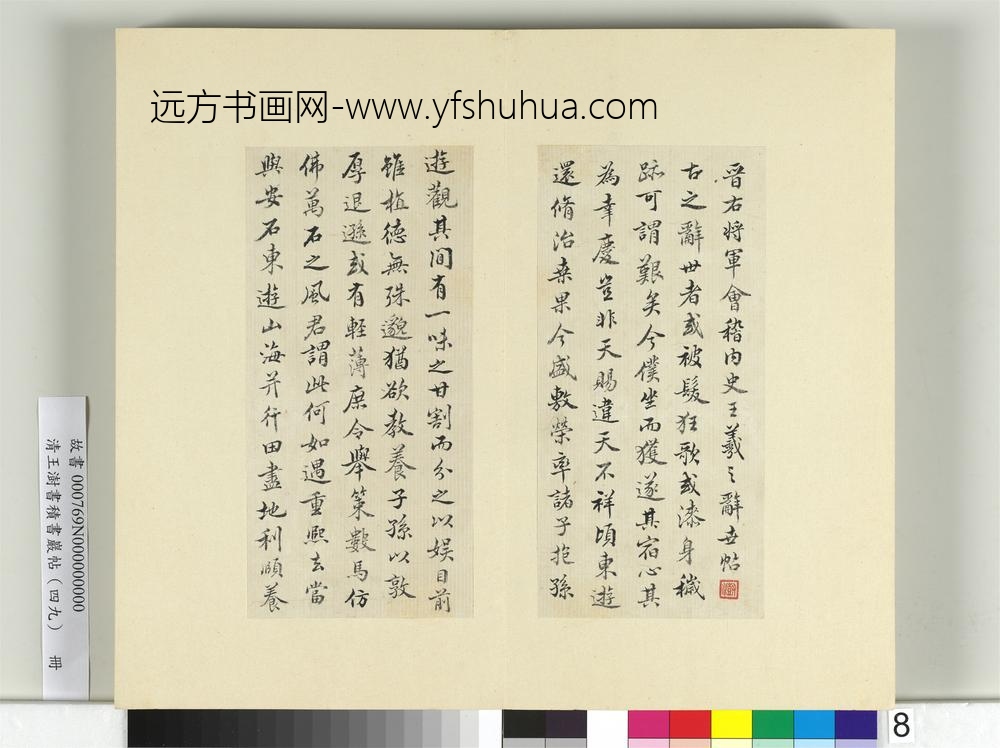 远方书画网-www.yfshuhua.com
晉右將軍會稽內史王羲之辭世帖
古之辭世者或被髮狂歌或漆身穢
跡可謂艱矣今僕坐而獲遂其宿心其
為幸慶豈非天賜違天不祥頃東遊
還脩治桑果今盛敷榮率諸子抱孫
遊觀其間有一味之甘割而分之以娛目前
雖植德無殊邈猶欲教養子孫以敦
厚退遜或有輕薄庶令舉策數馬仿
佛萬石之風君謂此何如遇重熙去當
與安石東遊山海并行田盡地利頤養
故書 000769N000000000
清王澍書積書巖帖(四九) 冊
8